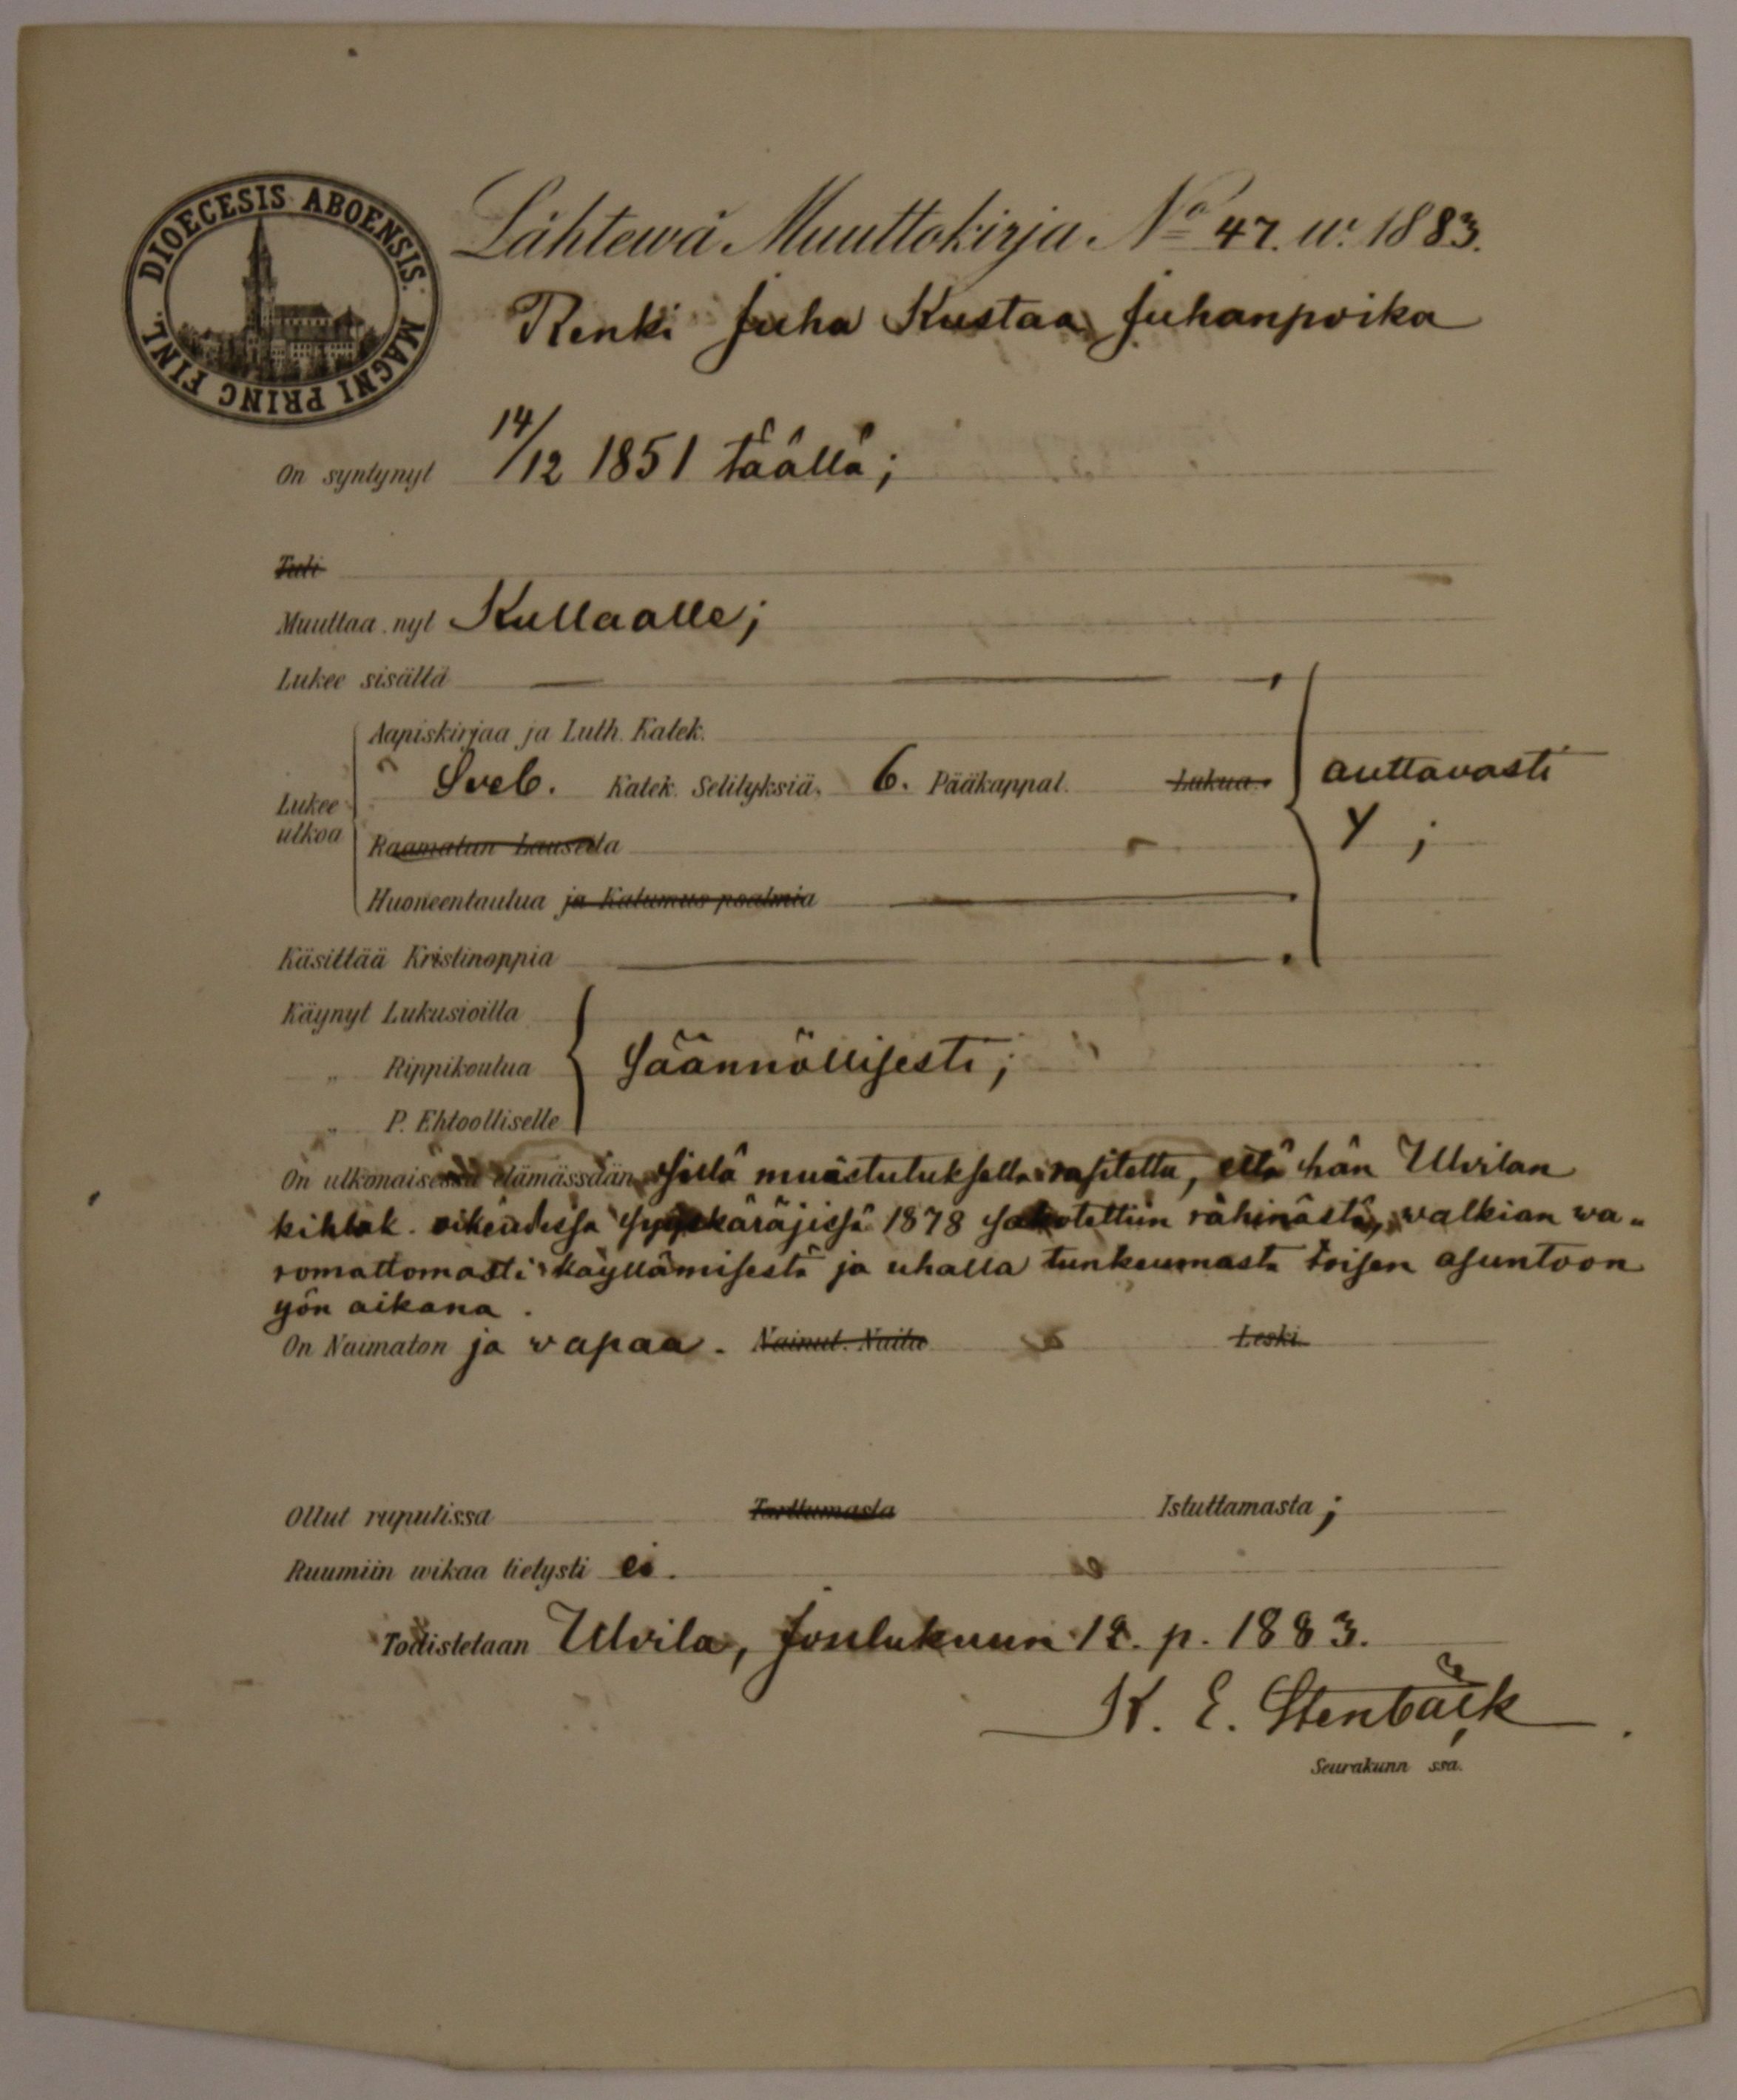 DIOECESIS ABOENSIS. MAGNI PRINC FINL.
Lähtewä Muuttokirja No 47. w. 1883.
Renki Juha Kustaa Juhanpoika
On syntynyt 14/12 1851 täällä;
Tuli
Muuttaa nyt Kullaalle;
Lukee sisältä
Aapiskirjaa ja Luth. Katek.
Lukee ulkoa
Sveb. Katek. Selityksiä, 6. Pääkappal. Lukua. auttavasti
Raamatun Lauseita
Huoneentaulua ja Katumus psalmia
Käsittää Kristinoppia
Käynyt Lukusioilla
„ Rippikoulua Säännöllisesti;
„ P. Ehtoolliselle
On ulkonaisessa elämässään sillä muistutuksella rasitettu, että hän Ulvilan
kihlak. oikeudessa syyskäräjissä 1878 sakotettiin rähinästä, walkian wa-
romattomasti käyttämisestä ja uhalla tunkeumasta toisen asuntoon
yön aikana.
On Naimaton ja vapaa. Nainut. Naitu Leski
Ollut rupulissa Tarttumasta Istuttamasta;
Ruumiin wikaa tietysti ei.
Todistetaan Ulvila, Joulukuun p. 1883.
K. E. Stenbäck
Seurakunn ssa.